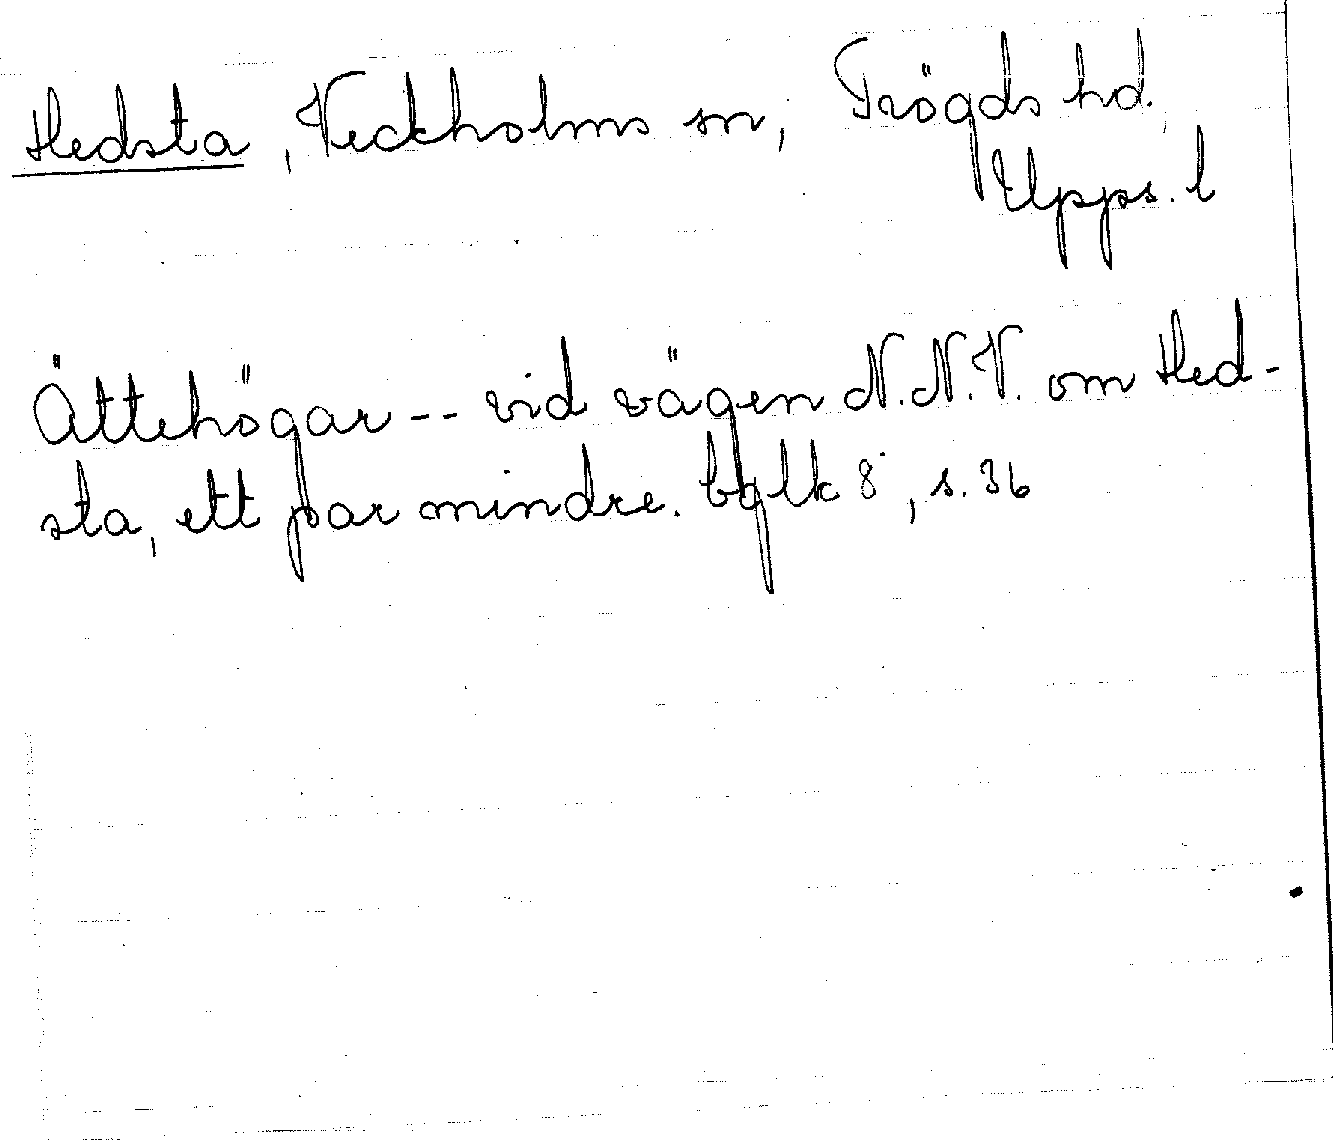 Hedsta, Veckholms sn, Trögds hd.
Upps. l
Ättehögar -- vid vägen N.N.V. om Hed-
sta, ett par mindre. bglk 8, s. 36